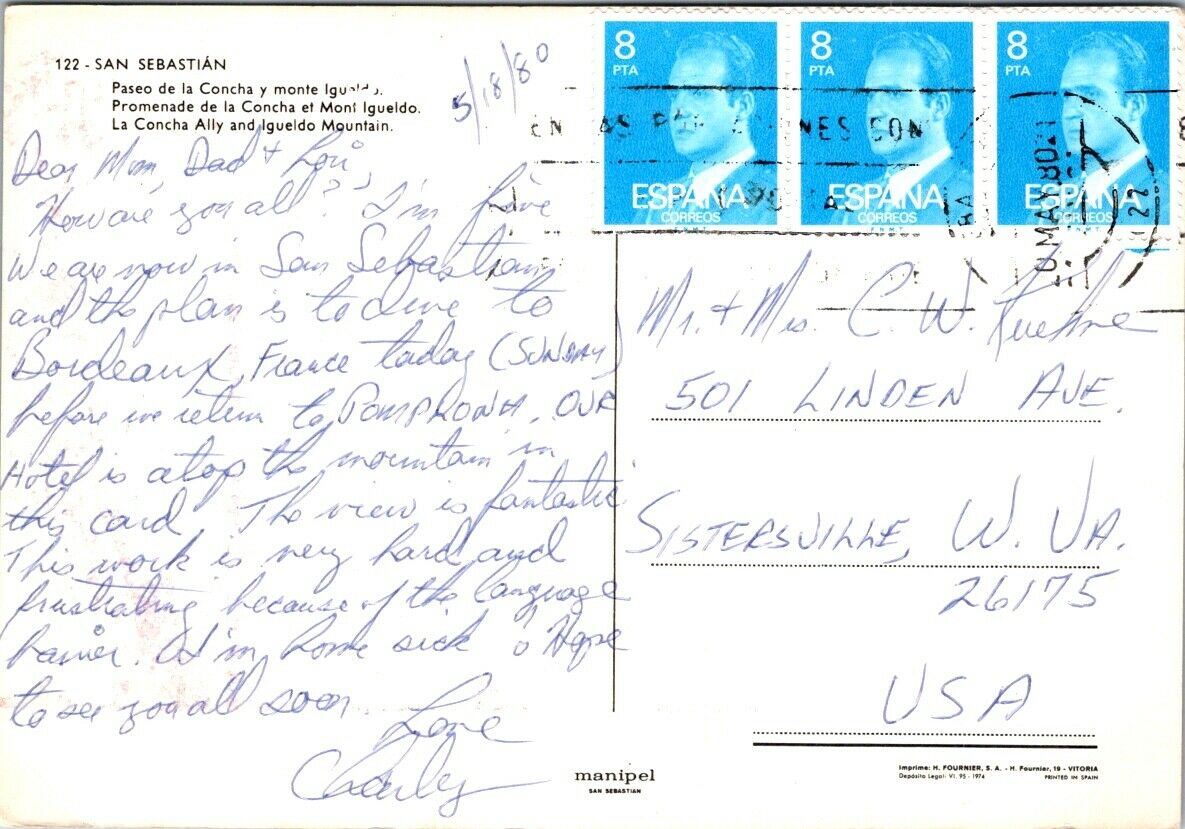 122 - SAN SEBASTIÁN
Paseo de la Concha y monte Igueldo.
Promenade de la Concha et Mont Igueldo.
La Concha Ally and Igueldo Mountain.
5/18/80
Dear Mom, Dad + Lori,
How are you all? I'm fine
We are now in San Sebastian
and the plan is to drive to
Bordeaux, France today (SUNDAY)
before we return to PAMPLONA. OUR
Hotel is atop the mountain in
this card. The view is fantastic.
This work is very hard and
frustrating because of the language
barrier. I'm home sick Hope
to see you all soon.
Love
Charley
8
PTA
ESPAÑA
CORREOS
F.N.M.T.
8
PTA
ESPAÑA
CORREOS
F.N.M.T.
8
PTA
ESPAÑA
CORREOS
F.N.M.T.
MAY 80
Mr. + Mrs. C. W. Kuehne
501 LINDEN AVE.
SISTERSVILLE, W. VA.
26175
USA
manipel
SAN SEBASTIAN
Imprime: H. FOURNIER, S. A. - H. Fournier, 19 - VITORIA
Depósito Legal: VI. 95 - 1974 PRINTED IN SPAIN